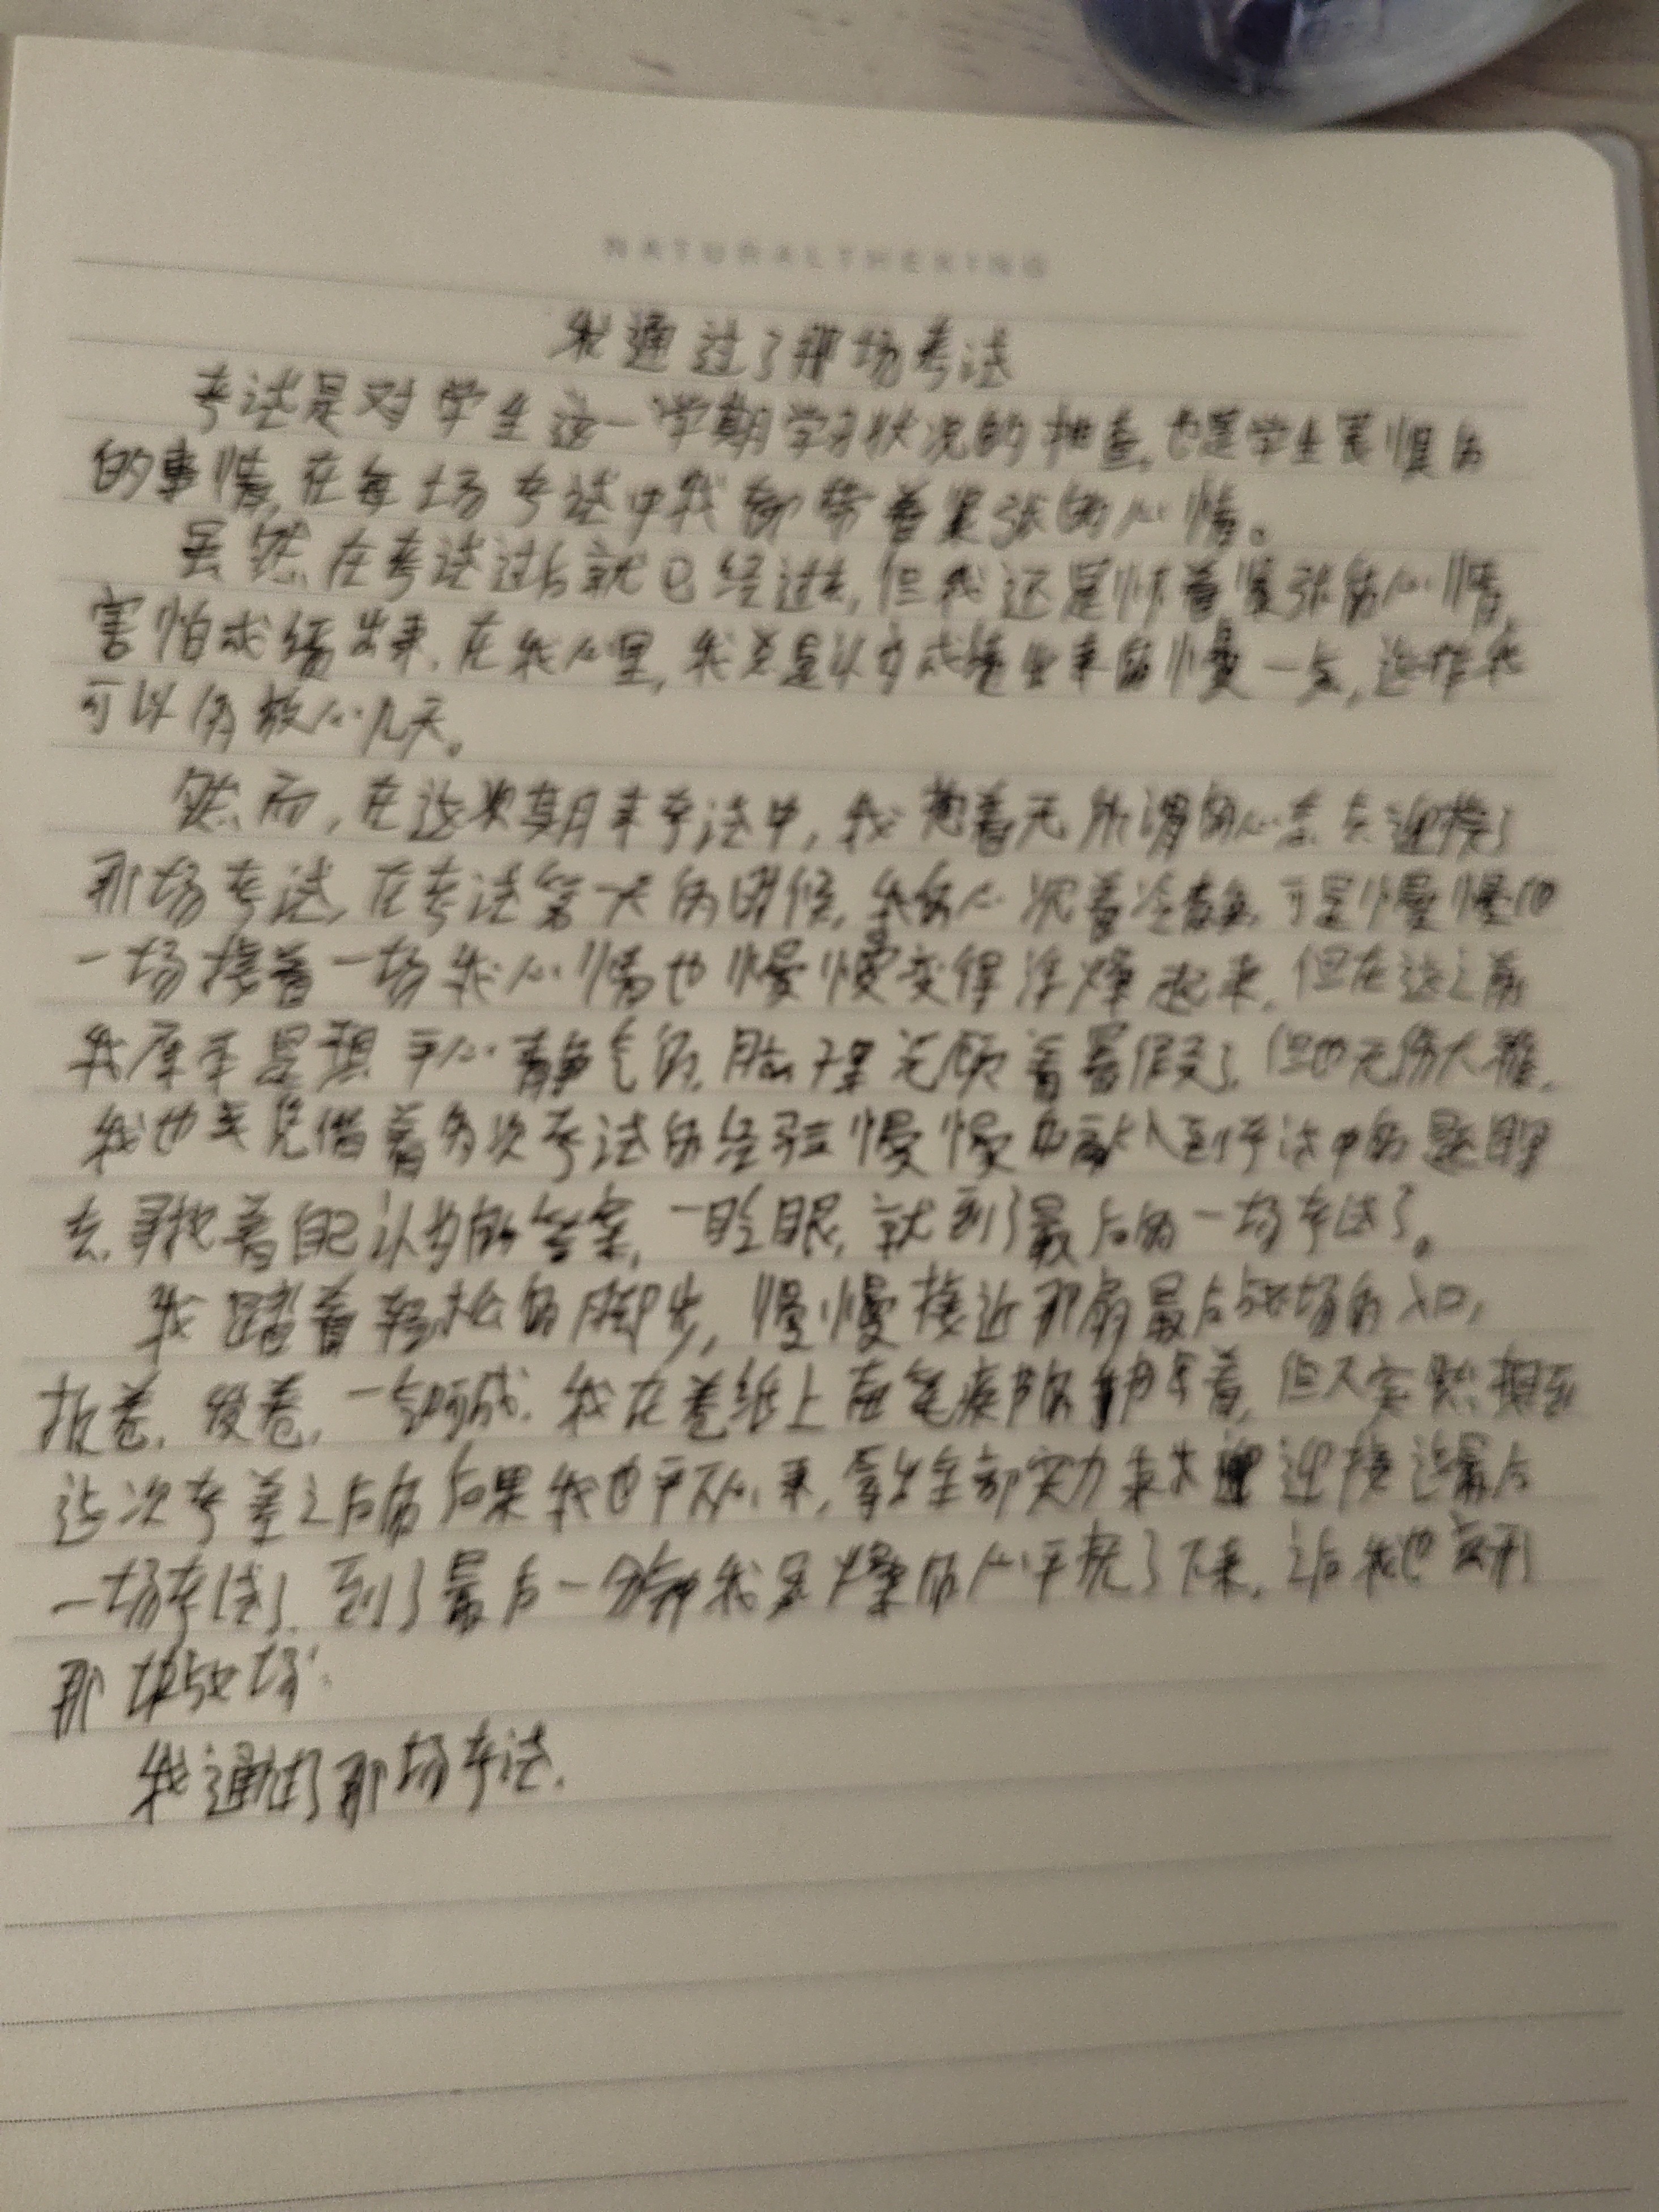 NATURALTHEKING
我通过了那场考试
考试是对学生这一学期学习状况的抽查,也是学生畏惧的
的事情,在每场考试中我都带着紧张的心情。
虽然在考试过后就已经过去,但我还是怀着紧张的心情,
害怕成绩出来,在我心里,我总是认为成绩出来的慢一点,这样我
可以多放心几天。
然而,在这次期末考试中,我抱着无所谓的心态去迎接了
那场考试,在考试第一天的时候,我的心沉着冷静,可是慢慢的
一场接着一场我心情也慢慢变得浮燥起来,但在这之前
我原本是想平心静气的,脑子里光顾着暑假了,但也无伤大雅,
我也凭借着多次考试的经验慢慢也融入到考试中的题目里
去,寻找着自己认为的答案,一眨眼,就到了最后的一场考试了。
我踏着轻松的脚步,慢慢接近那扇最后战场的入口,
拆卷,发卷,一气呵成,我在卷纸上奋笔疾的着,但又突然想到
这次考差之后的后果我也平下心来,拿出全部实力来去迎接这最后
一场考试了,到了最后一分钟我浮燥的心平抚了下来,之后我也离开
那块战场.
我通过了那场考试.